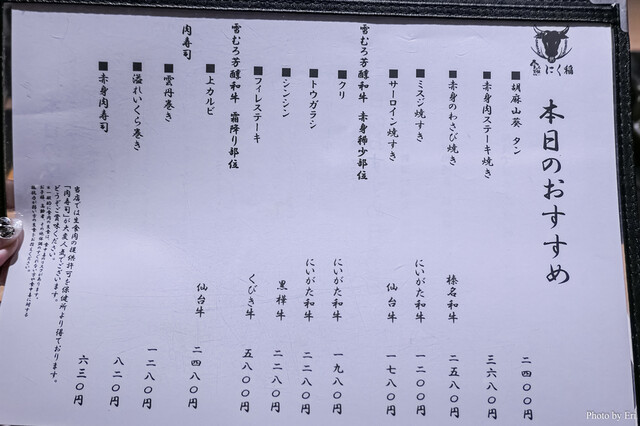 にく稲
本日のおすすめ
■胡麻山葵 タン 二四〇〇円
■赤身肉ステーキ焼き 三六八〇円
■赤身のわさび焼き 榛名和牛 二五八〇円
■ミスジ焼すき にいがた和牛 一二〇〇円
■サーロイン焼すき 仙台牛 一七八〇円
雪むろ芳醇和牛 赤身稀少部位
■クリ にいがた和牛 一九八〇円
■トウガラシ にいがた和牛 二二八〇円
■シンシン 黒樺牛 二二八〇円
■フィレステーキ くびき牛 五八〇〇円
雪むろ芳醇和牛 霜降り部位
■上カルビ 仙台牛 二四八〇円
肉寿司
■雲丹巻き 一二八〇円
■溢れいくら巻き 八二〇円
■赤身肉寿司 六三〇円
当店では生食肉の提供許可を保健所より得ております。
「肉寿司」が大変人気でございます。
どうぞご賞味ください。
Photo by Eri